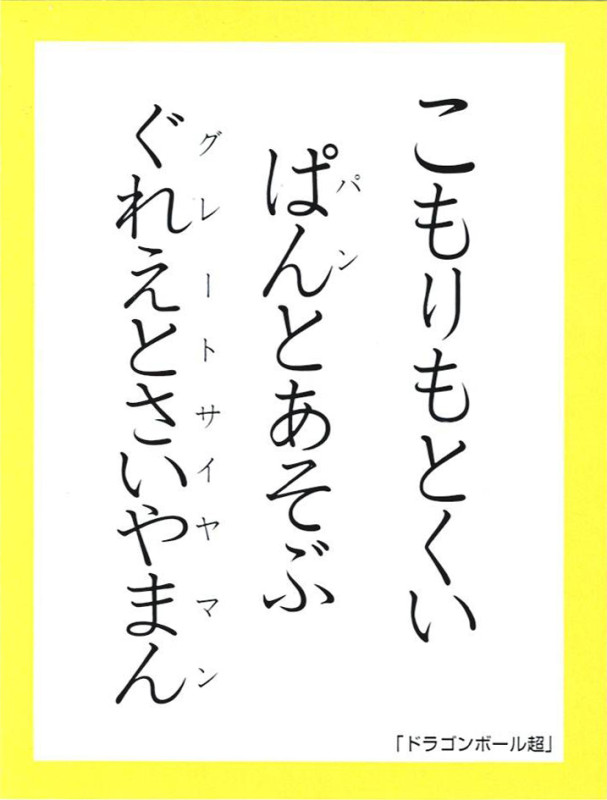 こもりもとくい
ぱんとあそぶ
パン
ぐれえとさいやまん
グレートサイヤマン
「ドラゴンボール超」